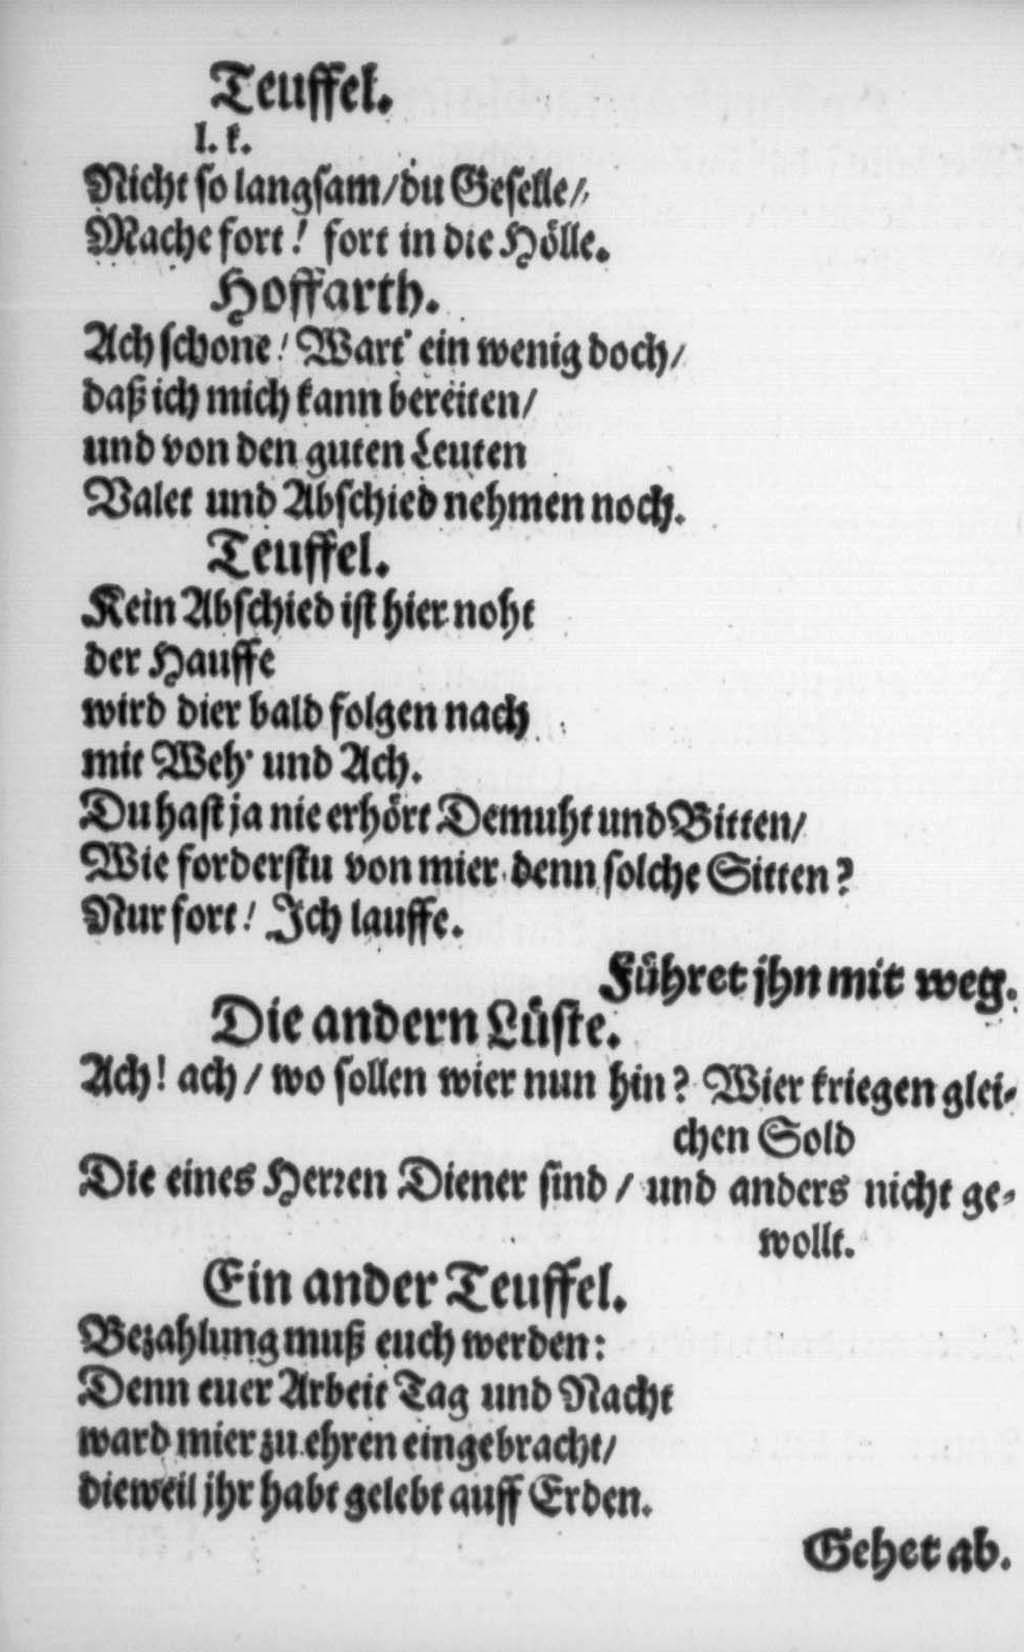 Teuffel.
l. k.
Nicht so langsam/du Geselle/
Mache fort! fort in die Hölle.
Hoffarth.
Ach schone! Wart' ein wenig doch/
daß ich mich kann bereiten/
und von den guten Leuten
Valet und Abschied nehmen noch.
Teuffel.
Kein Abschied ist hier noht
der Hauffe
wird dier bald folgen nach
mit Weh' und Ach.
Du hast ja nie erhört Demuht und Bitten/
Wie forderstu von mier denn solche Sitten?
Nur fort! Ich lauffe.
Führet jhn mit weg.
Die andern Lüste.
Ach! ach/ wo sollen wier nun hin? Wier kriegen glei-
chen Sold
Die eines Herren Diener sind/ und anders nicht ge-
wollt.
Ein ander Teuffel.
Bezahlung muß euch werden:
Denn euer Arbeit Tag und Nacht
ward mier zu ehren eingebracht/
dieweil jhr habt gelebt auff Erden.
Gehet ab.